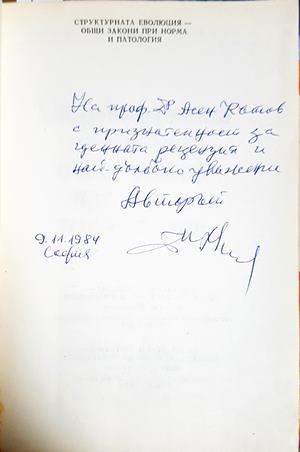 СТРУКТУРНАТА ЕВОЛЮЦИЯ —
ОБЩИ ЗАКОНИ ПРИ НОРМА
И ПАТОЛОГИЯ
На проф. Асен
с признателност за
ценната рецензия и
най-дълбоко уважение
Авторът
9.11.1984
София